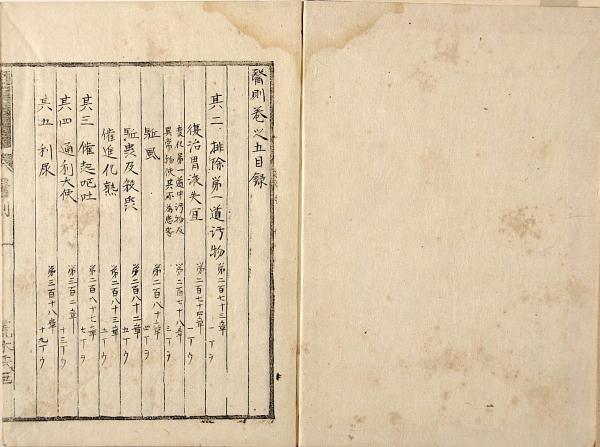 醫則巻之五目録
其二 排除第一道汚物 第二百七十三章 一丁ウ
復治胃液失宜 第二百七十四章 一丁ウ
変化第一道中汚物及異常物使其不為患害 第二百七十八章 三丁ヲ
駈風 第二百八十章 四丁ヲ
駈虫及殺虫 第二百八十二章 五丁ヲ
催進化熟 第二百八十三章 五丁ウ
其三 催起吧吐 第二百八十七章 七丁ヲ
其四 通利大便 第三百二章 十三丁ウ
其五 利尿 第三百十八章 十九丁ウ